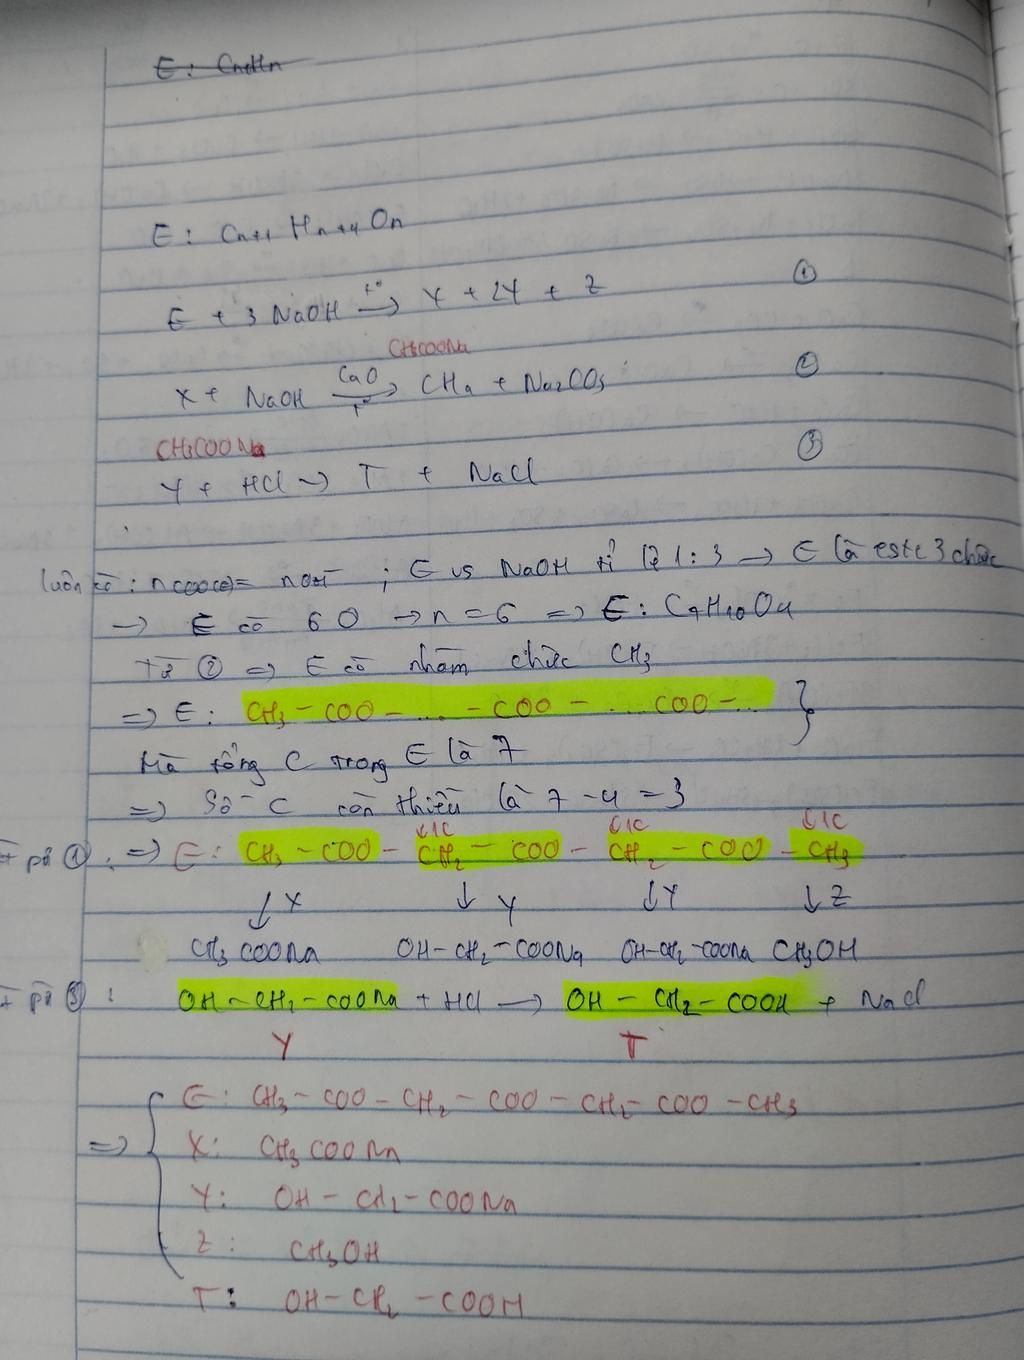 E: CnHn
E: Cn+1 Hn+4 On
E + 3 NaOH t° → Y + 2Y + Z ①
CH3COONa
X + NaOH CaO → t° CH4 + Na2CO3 ②
CH3COONa
Y + HCl → T + NaCl ③
luôn có: ncoo(e) = nOH- ; E vs NaOH tỉ lệ 1:3 → E là este 3 chức
→ E có 6 O → n = 6 => E: C7H10O4
Từ ② => E có nhóm chức CH3
=> E: CH3 - COO - ... - COO - ... COO - .. }
Mà tổng C trong E là 7
=> Số C còn thiếu là 7 - 4 = 3
↓1C ↓1C ↓1C
Từ pứ ①: => E: CH3 - COO - CH2 - COO - CH2 - COO - CH3
↓ X ↓ Y ↓ Y ↓ Z
CH3COONa OH-CH2-COONa OH-CH2-COONa CH3OH
Từ pứ ③: OH - CH2 - COONa + HCl → OH - CH2 - COOH + NaCl
Y T
E: CH3 - COO - CH2 - COO - CH2 - COO - CH3
=> { X: CH3COONa
Y: OH - CH2 - COONa
Z: CH3OH
T: OH - CH2 - COOH